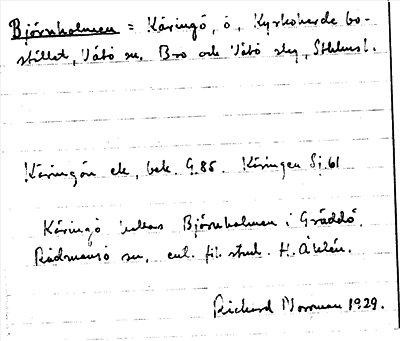 Björnholmen = Käringö, ö, Kyrkoherdebo-
stället, Vätö sn, Bro och Vätö slg, Sthlms l.
Käringön ek, bek. G.86. Käringen Sj.61
Käringö kallas Björnholmen i Gräddö,
Rådmansö sn, enl. fil. stud. H. Åhlén.
Richard Norrman 1929.